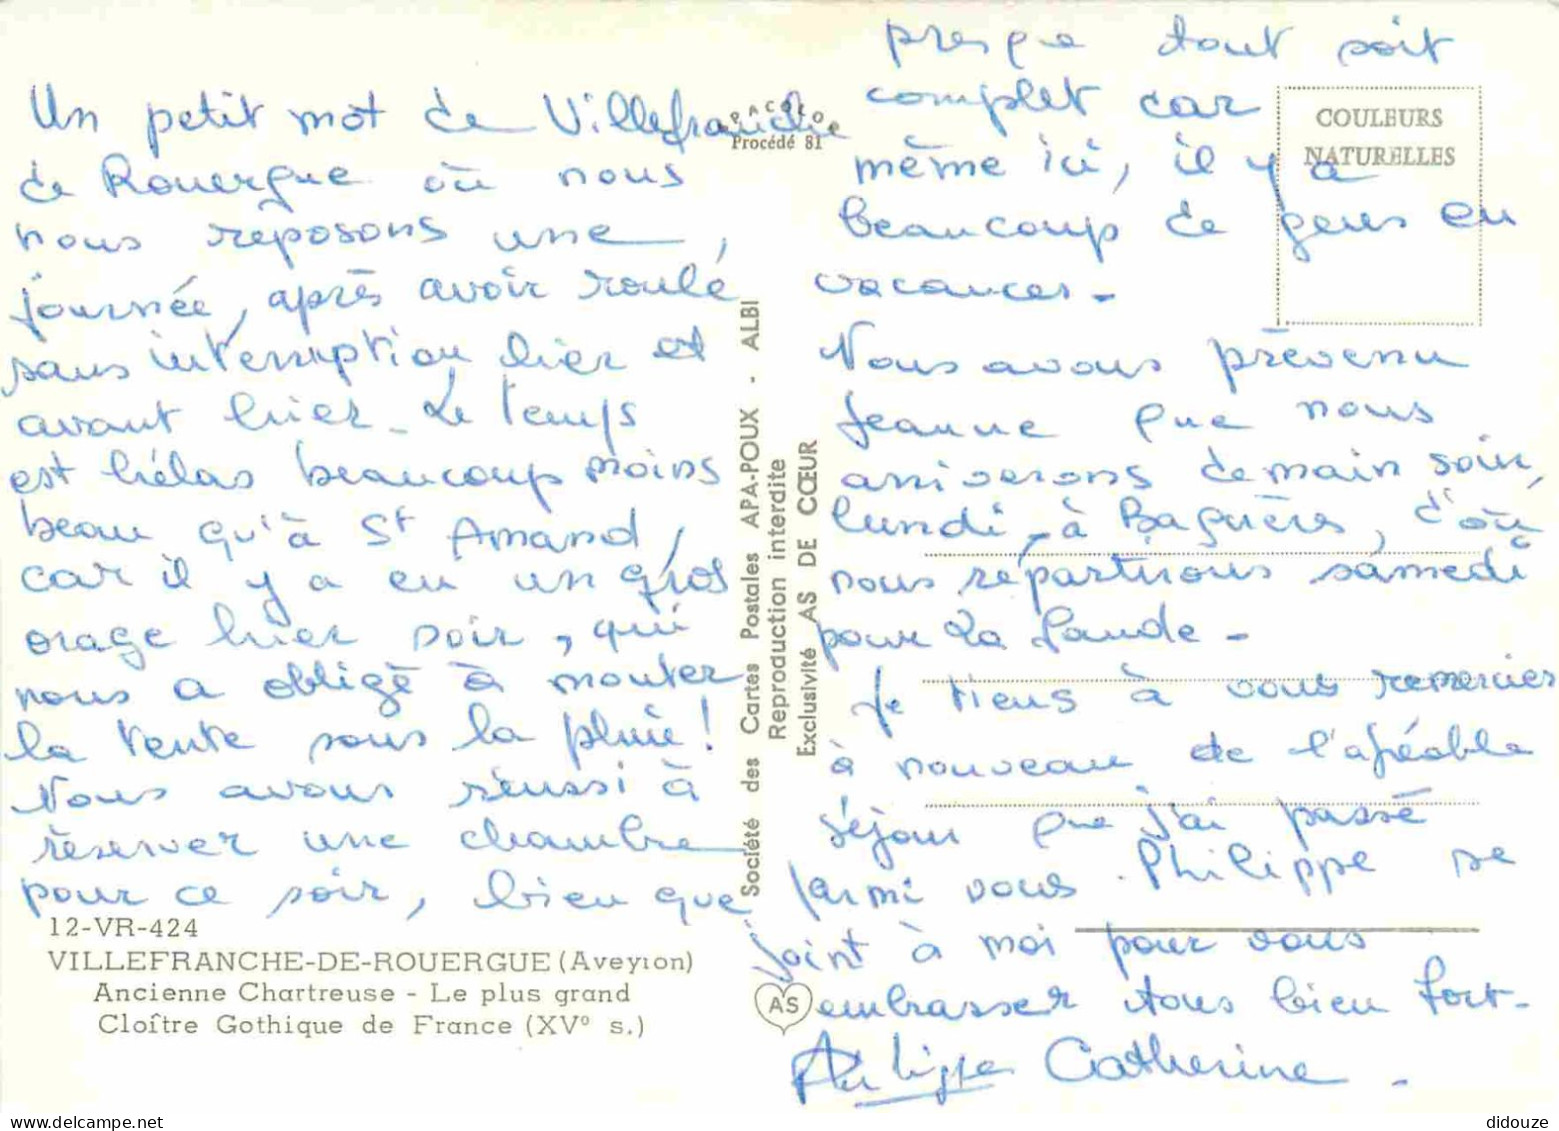 Un petit mot de Villefranche
de Rouergue où nous
nous reposons une
journée, après avoir roulé
sans interruption hier et
avant hier. Le temps
est hélas beaucoup moins
beau qu'à St Amand,
car il y a eu un gros
orage hier soir, qui
nous a obligé à monter
la tente sous la pluie!
Nous avons réussi à
réserver une chambre
pour ce soir, bien que
12-VR-424
VILLEFRANCHE-DE-ROUERGUE (Aveyron)
Ancienne Chartreuse - Le plus grand
Cloître Gothique de France (XVº s.)
Procédé 81
Société des Cartes Postales APA-POUX - ALBI
Reproduction interdite
Exclusivité AS DE CŒUR
AS
COULEURS
NATURELLES
presque tout soit
complet car
même ici, il y a
beaucoup de gens en
vacances -
Nous avons prévenu
Jeanne que nous
arriverons demain soir,
lundi, à Bagnères, d'où
nous repartirons samedi
pour La Lande -
Je tiens à vous remercier
à nouveau de l'agréable
séjour que j'ai passé
parmi vous. Philippe se
joint à moi pour vous
embrasser tous bien fort -
Philippe Catherine -
didouze